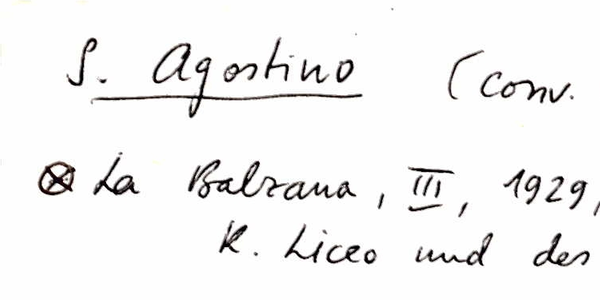 S. Agostino (conv.
⊗ La Balzana, III, 1929,
R. Liceo und des